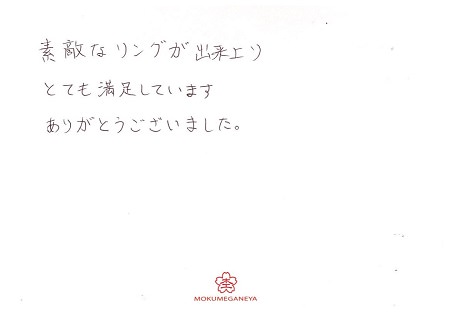 素敵なリングが出来上り
とても満足しています
ありがとうございました。
MOKUMEGANEYA